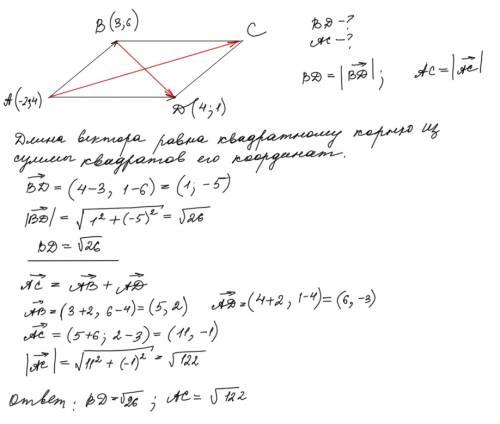 B(3,6)
C
A(-2,4)
D(4;1)
BD-?
AC-?
BD = |BD|; AC = |AC|
Длина вектора равна квадратному корню из
суммы квадратов его координат.
BD = (4-3, 1-6) = (1, -5)
|BD| = √1² + (-5)² = √26
BD = √26
AC = AB + AD
AB = (3+2, 6-4) = (5, 2) AD = (4+2, 1-4) = (6, -3)
AC = (5+6; 2-3) = (11, -1)
|AC| = √11² + (-1)² = √122
Ответ: BD = √26; AC = √122